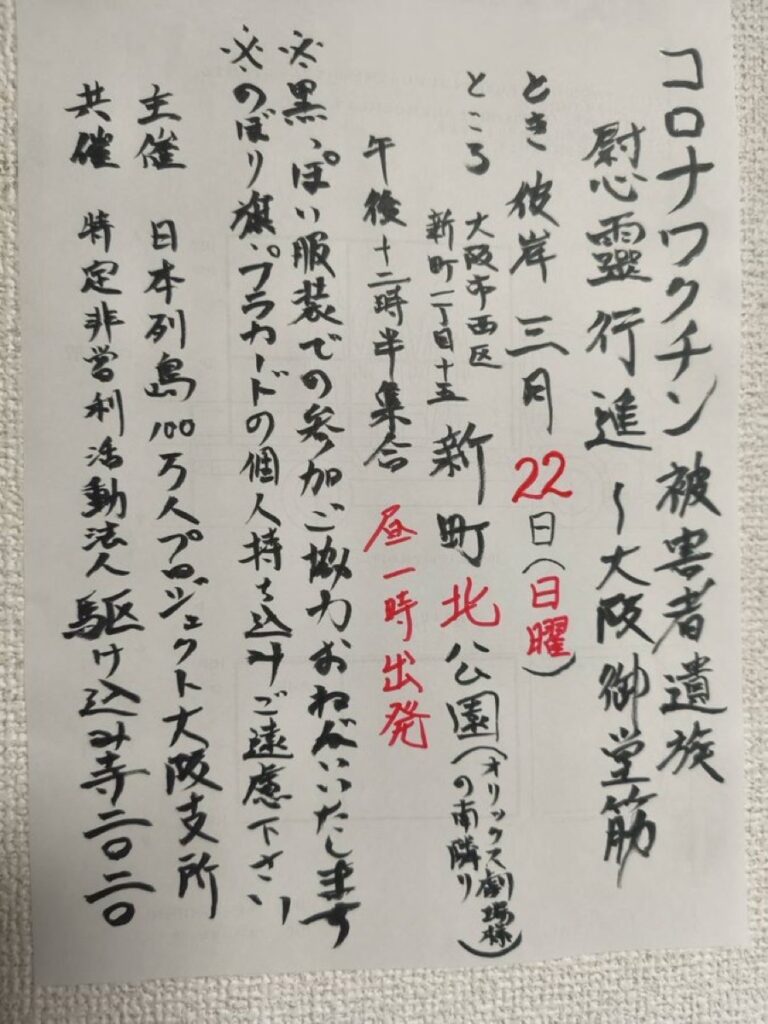 コロナワクチン被害者遺族
慰霊行進〜大阪御堂筋
とき 彼岸 三月22日(日曜)
ところ 大阪市西区
新町一丁目十五 新町北公園(オリックス劇場様
の南隣り)
午後十二時半集合 昼一時出発
※黒っぽい服装での参加ご協力おねがいいたします
※のぼり旗・プラカードの個人持ち込みご遠慮下さい
主催 日本列島100万人プロジェクト大阪支所
共催 特定非営利活動法人 駆け込み寺二〇二〇